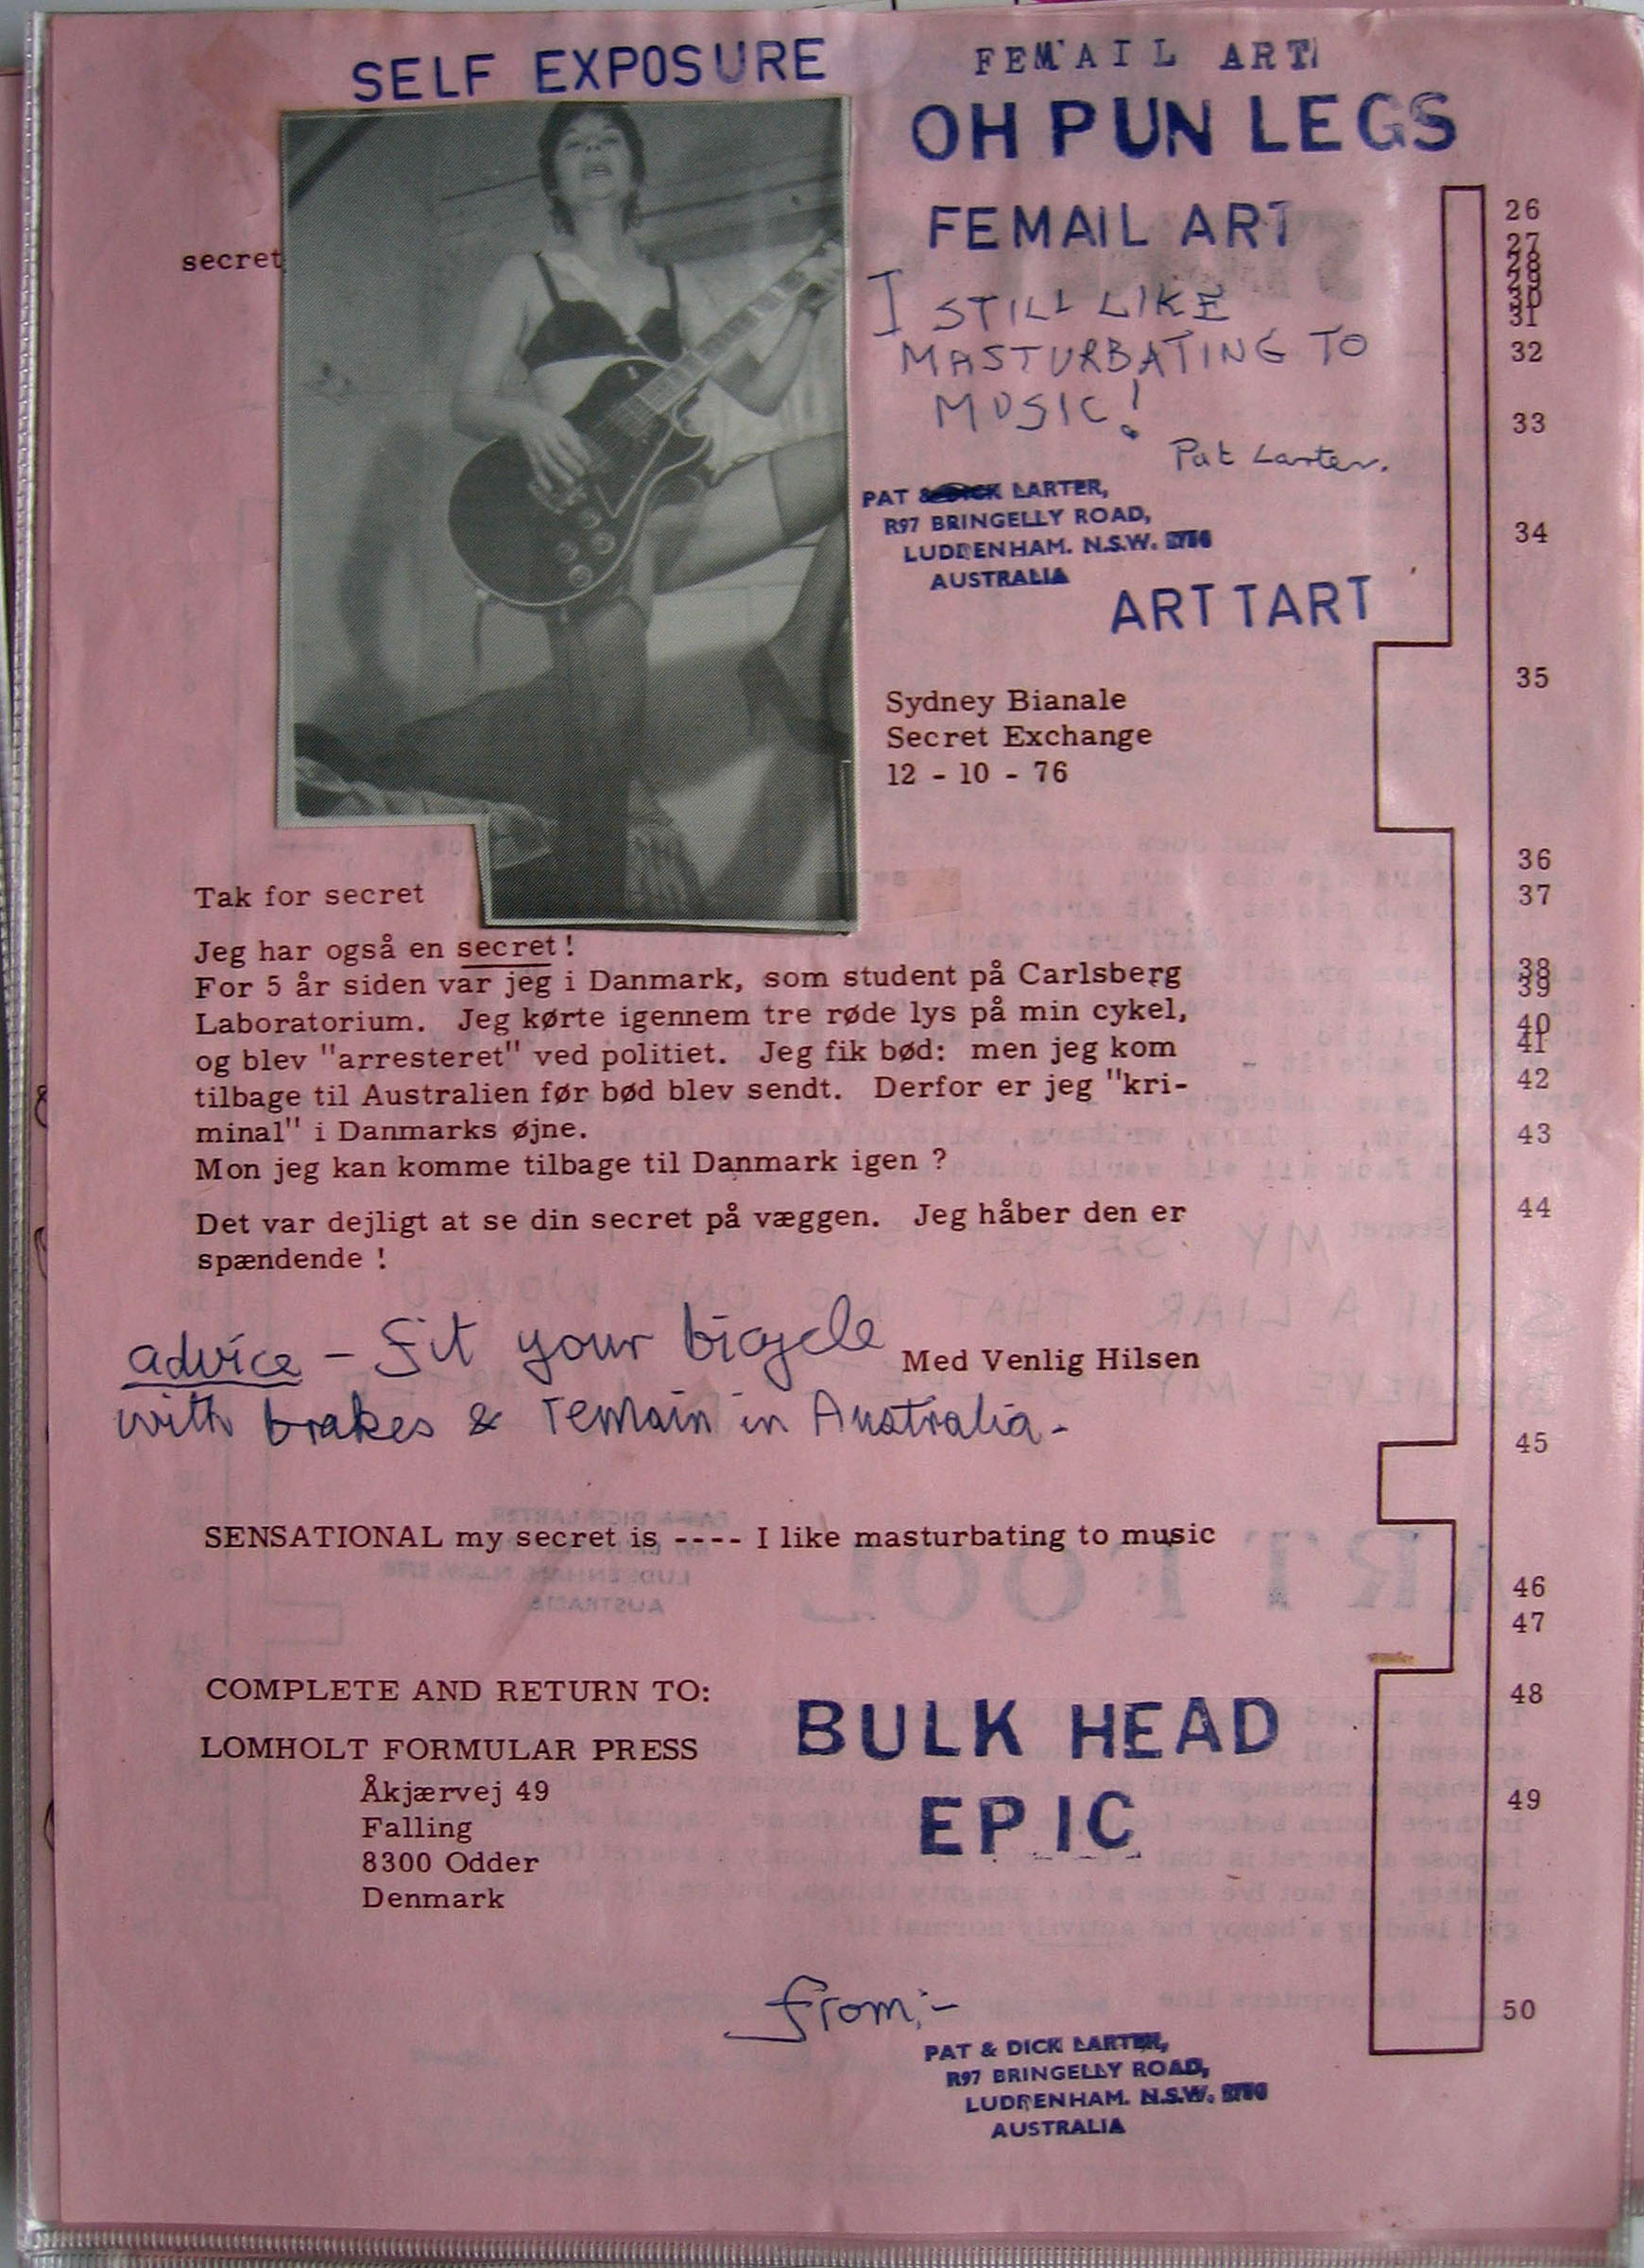 SELF EXPOSURE
FEMAIL ART
OH PUN LEGS
FEMAIL ART
secret
I STILL LIKE
MASTURBATING TO
MUSIC!
Pat Larter.
PAT & DICK LARTER,
R97 BRINGELLY ROAD,
LUDDENHAM. N.S.W.
AUSTRALIA
ART TART
Sydney Bianale
Secret Exchange
12 - 10 - 76
Tak for secret
Jeg har også en secret !
For 5 år siden var jeg i Danmark, som student på Carlsberg
Laboratorium. Jeg kørte igennem tre røde lys på min cykel,
og blev "arresteret" ved politiet. Jeg fik bød: men jeg kom
tilbage til Australien før bød blev sendt. Derfor er jeg "kri-
minal" i Danmarks øjne.
Mon jeg kan komme tilbage til Danmark igen ?
Det var dejligt at se din secret på væggen. Jeg håber den er
spændende !
advice - fit your bicycle
Med Venlig Hilsen
with brakes & remain in Australia.-
SENSATIONAL my secret is ---- I like masturbating to music
COMPLETE AND RETURN TO:
LOMHOLT FORMULAR PRESS
Åkjærvej 49
Falling
8300 Odder
Denmark
BULK HEAD
EPIC
from;-
PAT & DICK LARTER,
R97 BRINGELLY ROAD,
LUDDENHAM. N.S.W.
AUSTRALIA
26
27
28
29
30
31
32
33
34
35
36
37
38
39
40
41
42
43
44
45
46
47
48
49
50